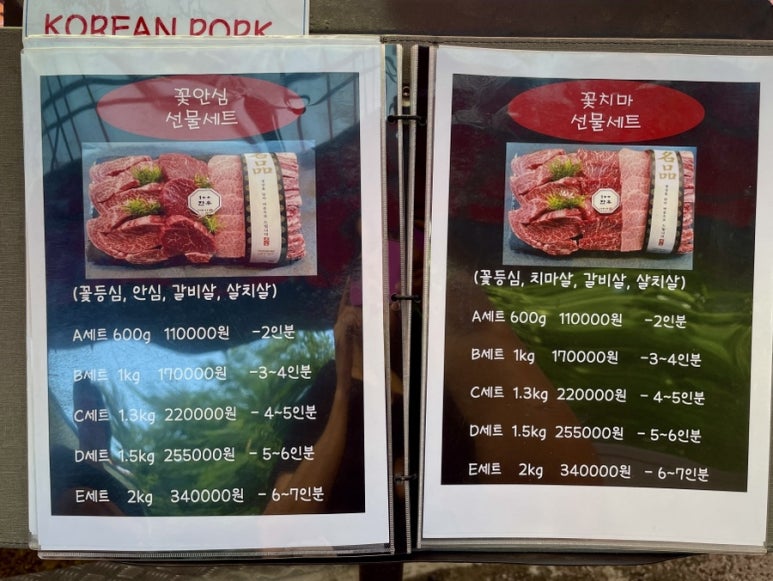 KOREAN PORK
꽃안심
선물세트
名品
한우
(꽃등심, 안심, 갈비살, 살치살)
A세트 600g 110000원 -2인분
B세트 1kg 170000원 -3~4인분
C세트 1.3kg 220000원 - 4~5인분
D세트 1.5kg 255000원 - 5~6인분
E세트 2kg 340000원 - 6~7인분
꽃치마
선물세트
名品
한우
(꽃등심, 치마살, 갈비살, 살치살)
A세트 600g 110000원 -2인분
B세트 1kg 170000원 -3~4인분
C세트 1.3kg 220000원 - 4~5인분
D세트 1.5kg 255000원 - 5~6인분
E세트 2kg 340000원 - 6~7인분